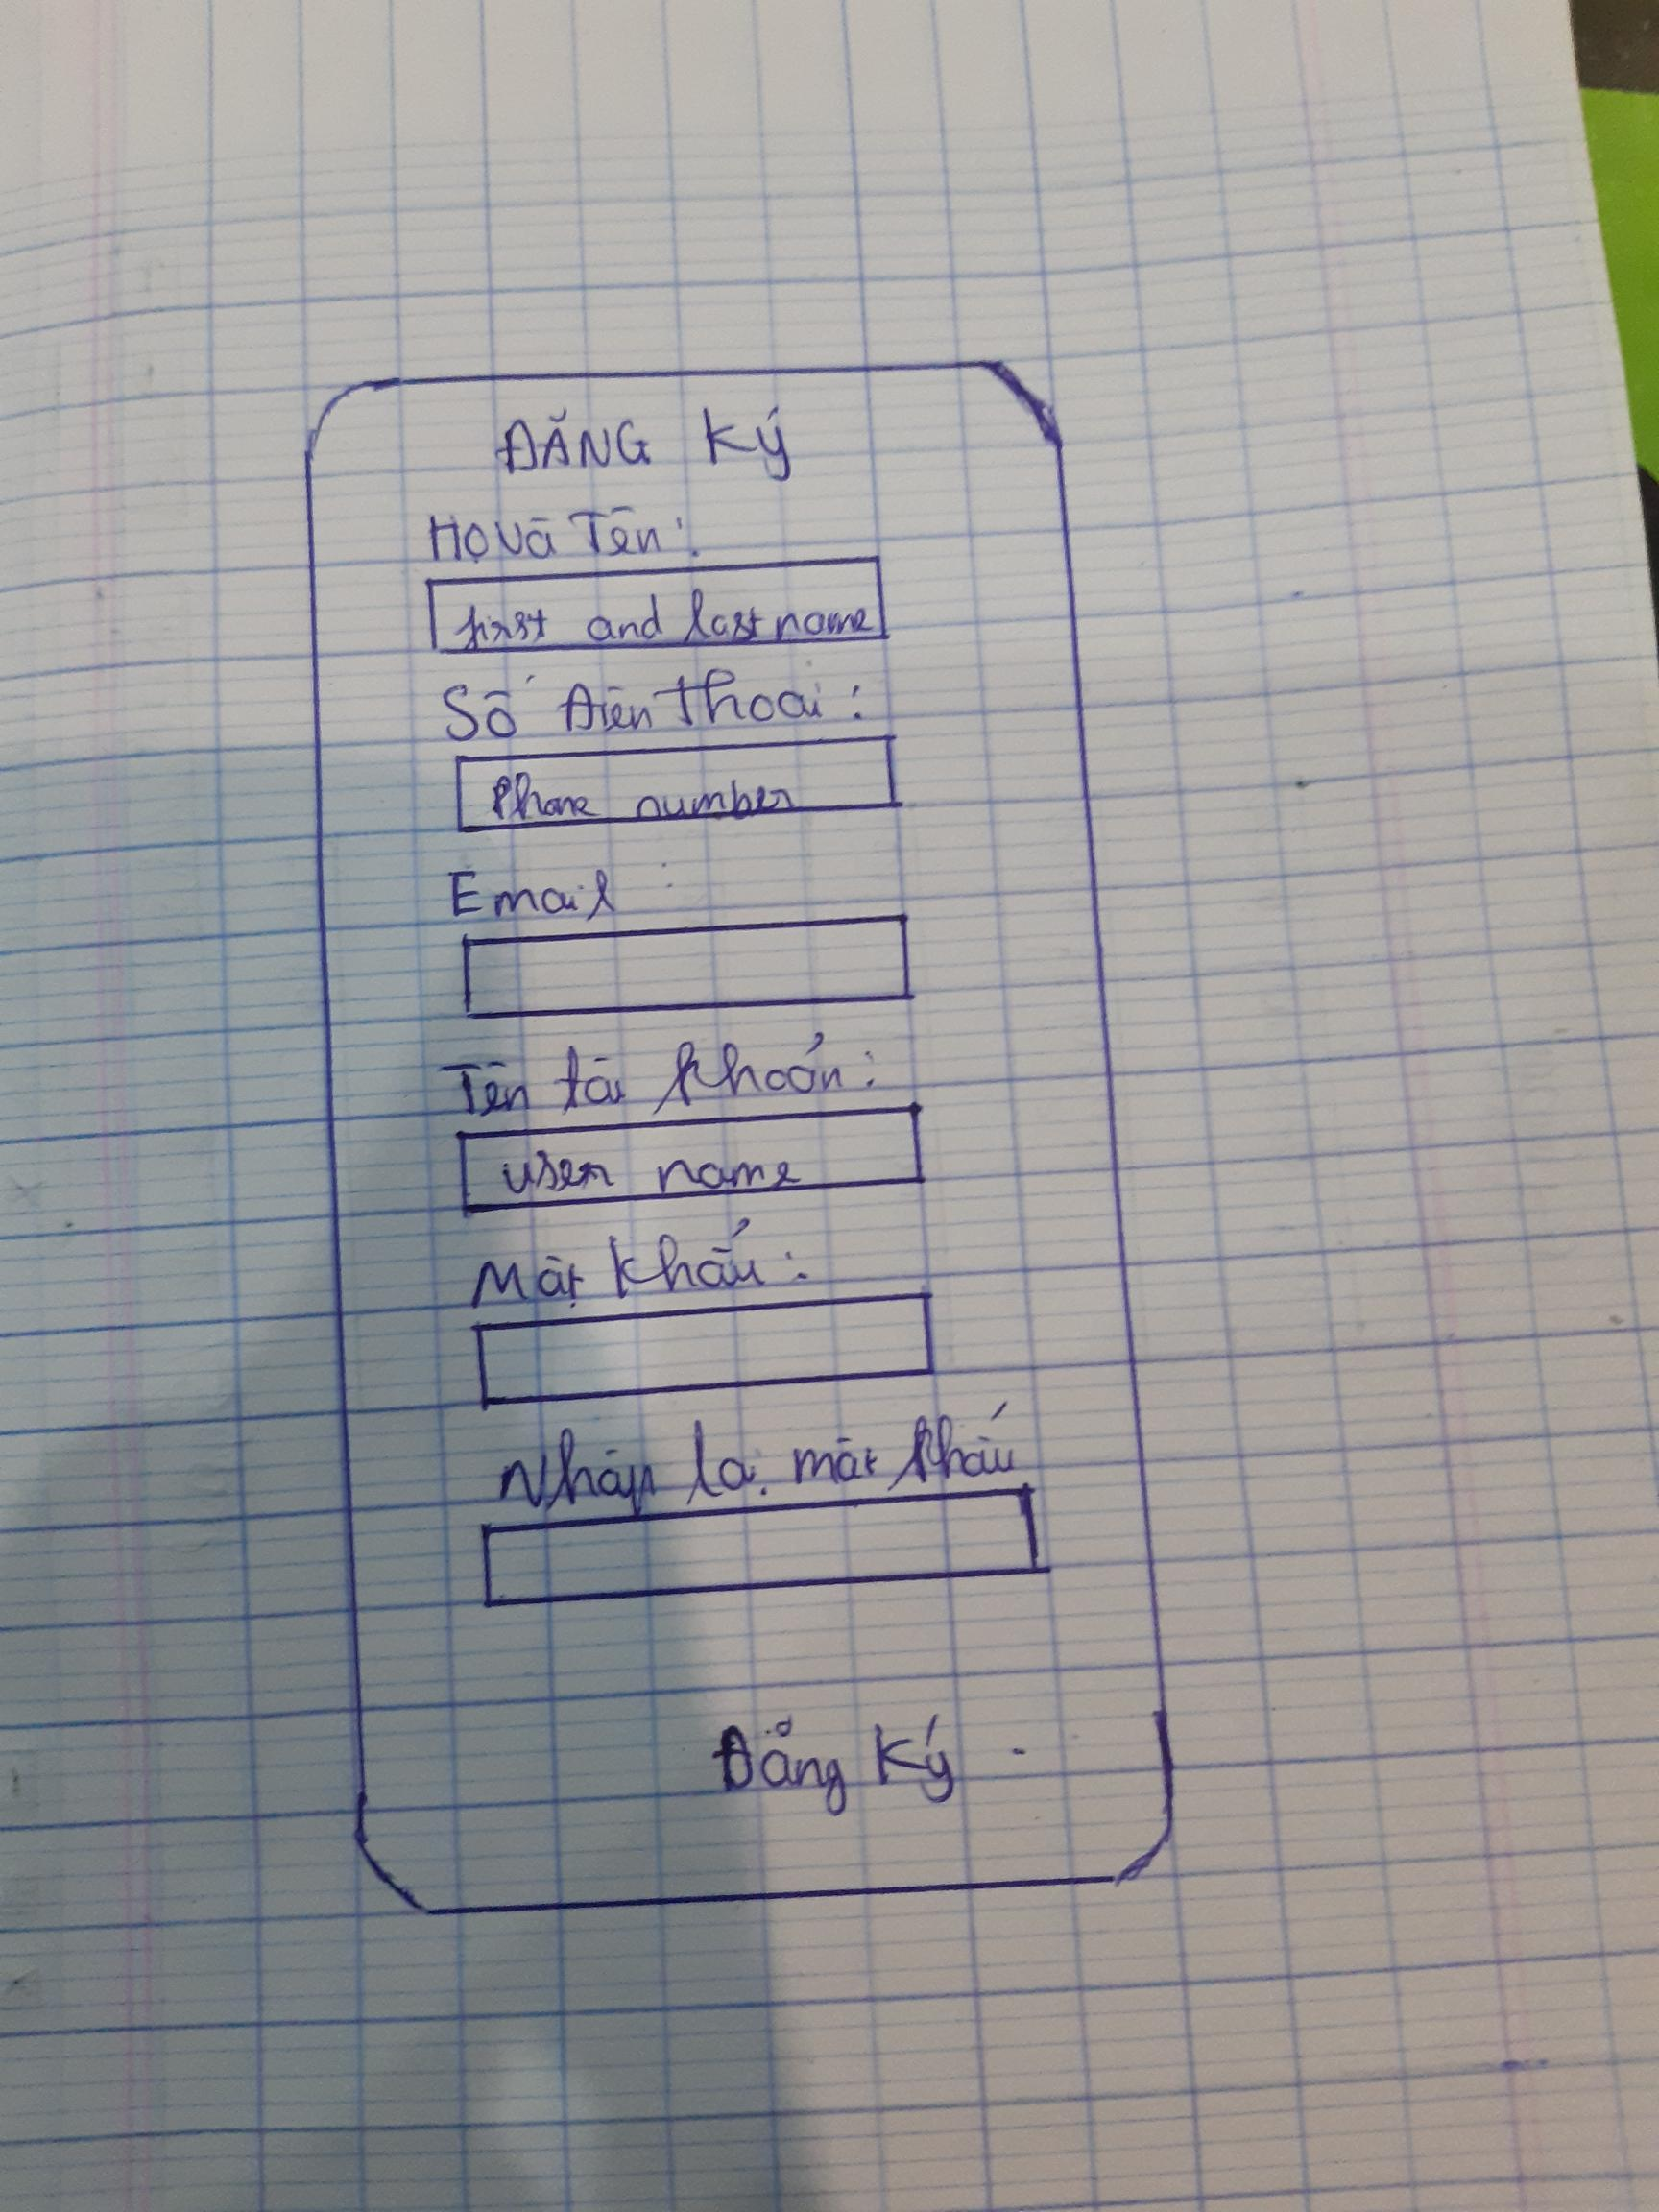 ĐĂNG Ký
Họ và Tên:
first and last name
Số Điện thoại:
Phone number
Email :
Tên tài khoản:
user name
Mật khẩu:
Nhập lại mật khẩu
Đăng Ký